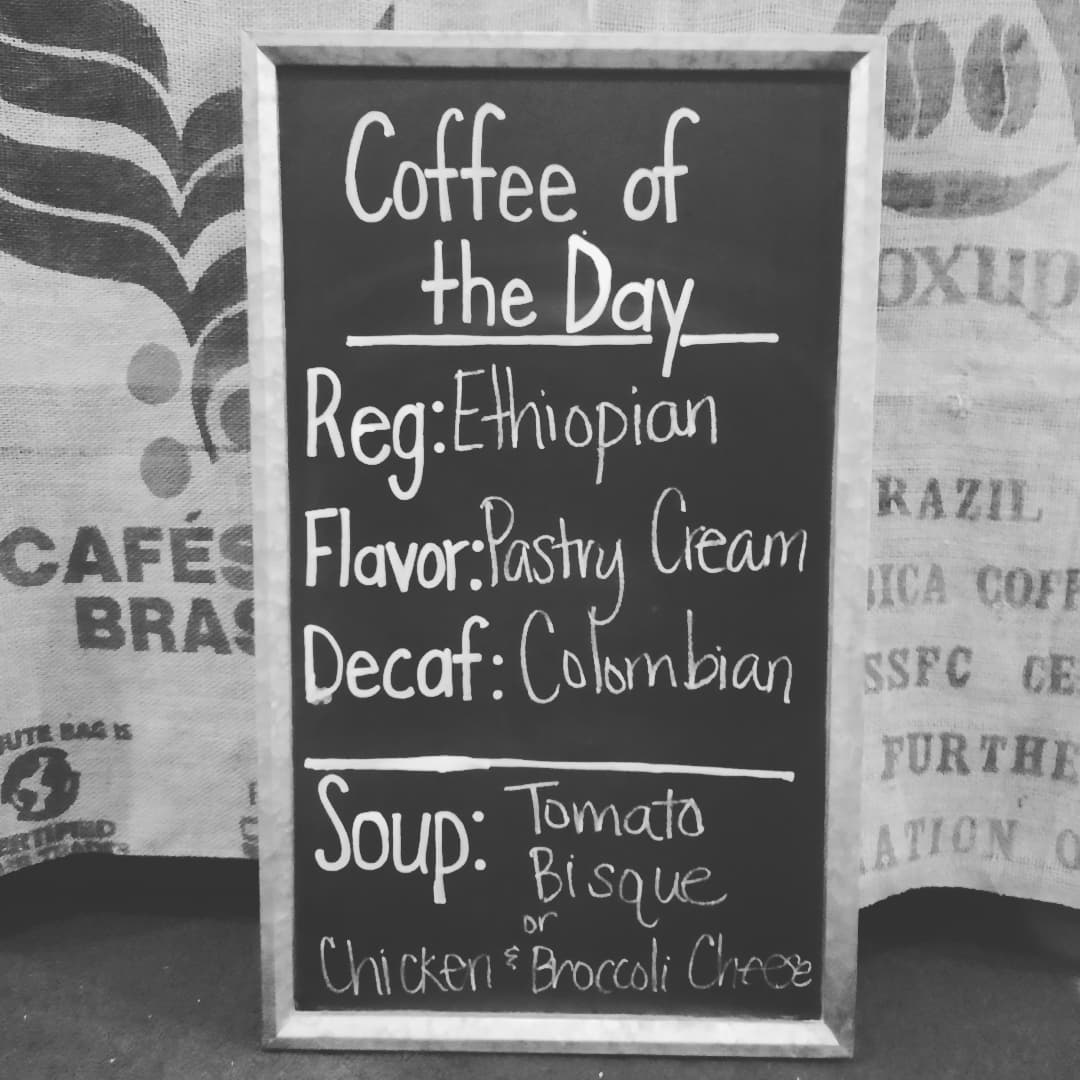 Coffee of
the Day
Reg: Ethiopian
Flavor: Pastry Cream
Decaf: Colombian
Soup: Tomato
Bisque
or
Chicken & Broccoli Cheese
CAFÉS
BRAS
JUTE BAG IS
CERTIFIED
oxup
RAZIL
ICA COFF
SSFC CE
FURTHE
ATION O